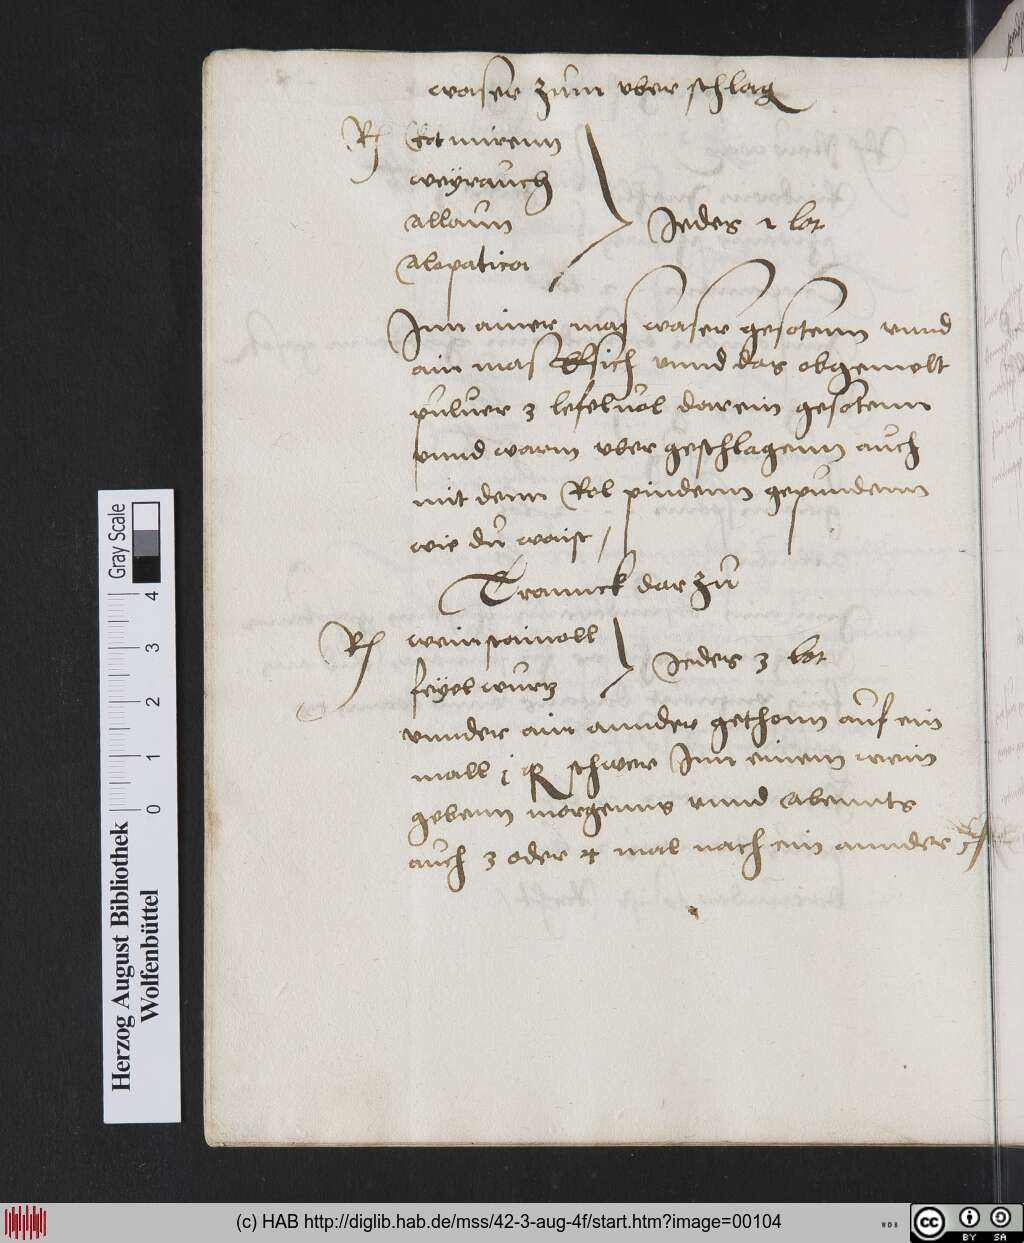 waser zům vber schlag
Rp Rot mirenn
weÿrauch
allaun
alopatica
Jedes 1 lot
Jnn ainer mas waser gesotenn vnnd
ain mas Essich vnnd das obgemelt
puluer 3 lefeluol darein gesotenn
vnnd warm vber geschlagenn auch
mit denn Rol pindenn gepundenn
wie dů waist /
Trannck dar zů
Rp weinstainoll
feÿelwurtz
Jedes 3 lot
vnnder ain annder gethonn auf ein
mall j schwer Jnn einem wein
gebenn morgenns vnnd abennts
auch 3 oder 4 mal nach ein annder
Herzog August Bibliothek
Wolfenbüttel
0 1 2 3 4
Gray Scale
(c) HAB http://diglib.hab.de/mss/42-3-aug-4f/start.htm?image=00104
WDB
cc BY SA